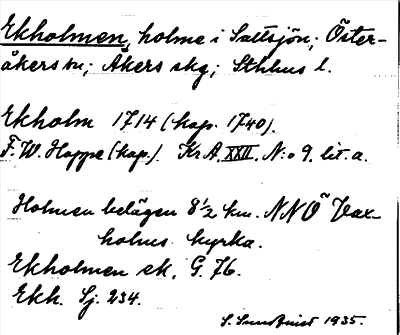 Ekholmen, holme i Saltsjön; Öster-
åkers sn; Åkers skg; Sthlms l.
Ekholm 1714 (kop. 1740).
F. W. Hoppe (kop.) KrA. XXII. N:o 9. lit. a.
Holmen belägen 8 ½ km. NNÖ Vax-
holms kyrka.
Ekholmen ek. G. 76.
Ekh. Sj. 234.
S. Sundquist 1935.